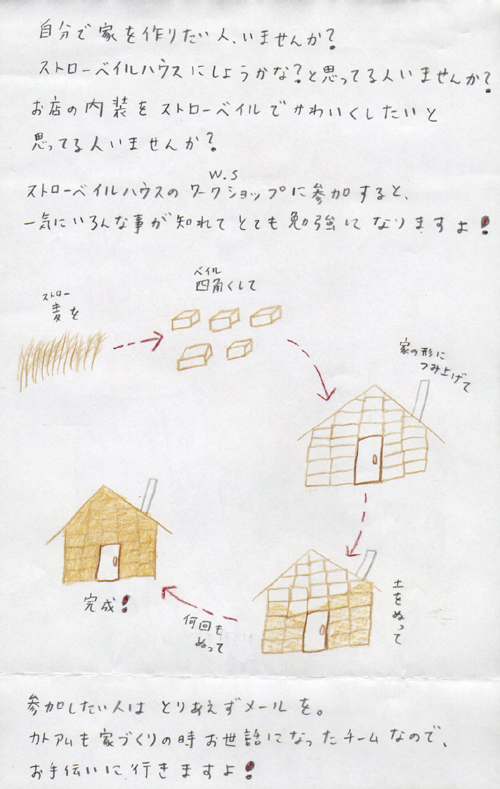 自分で家を作りたい人、いませんか?
ストローベイルハウスにしようかな?と思ってる人いませんか?
お店の内装をストローベイルでかわいくしたいと
思ってる人いませんか?
W.S
ストローベイルハウスのワークショップに参加すると、
一気にいろんな事が知れてとても勉強になりますよ!
ストロー
麦を
ベイル
四角くして
家の形に
つみ上げて
土をぬって
何回も
ぬって
完成!
参加したい人はとりあえずメールを。
カトアムも家づくりの時お世話になったチームなので、
お手伝いに行きますよ!